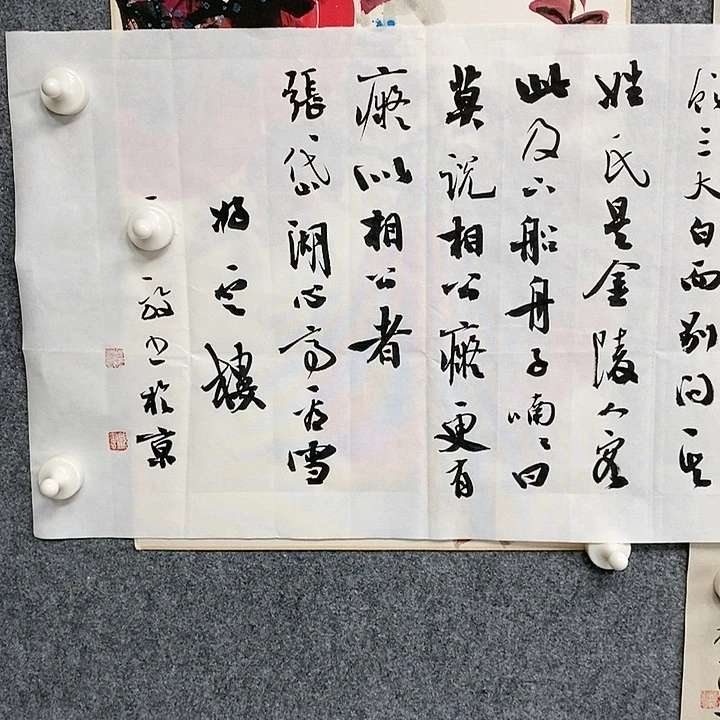 飲三大白而別問其
姓氏是金陵人客
此及下船舟子喃喃曰
莫說相公癡更有
癡似相公者
張岱湖心亭看雪
樓
書於京